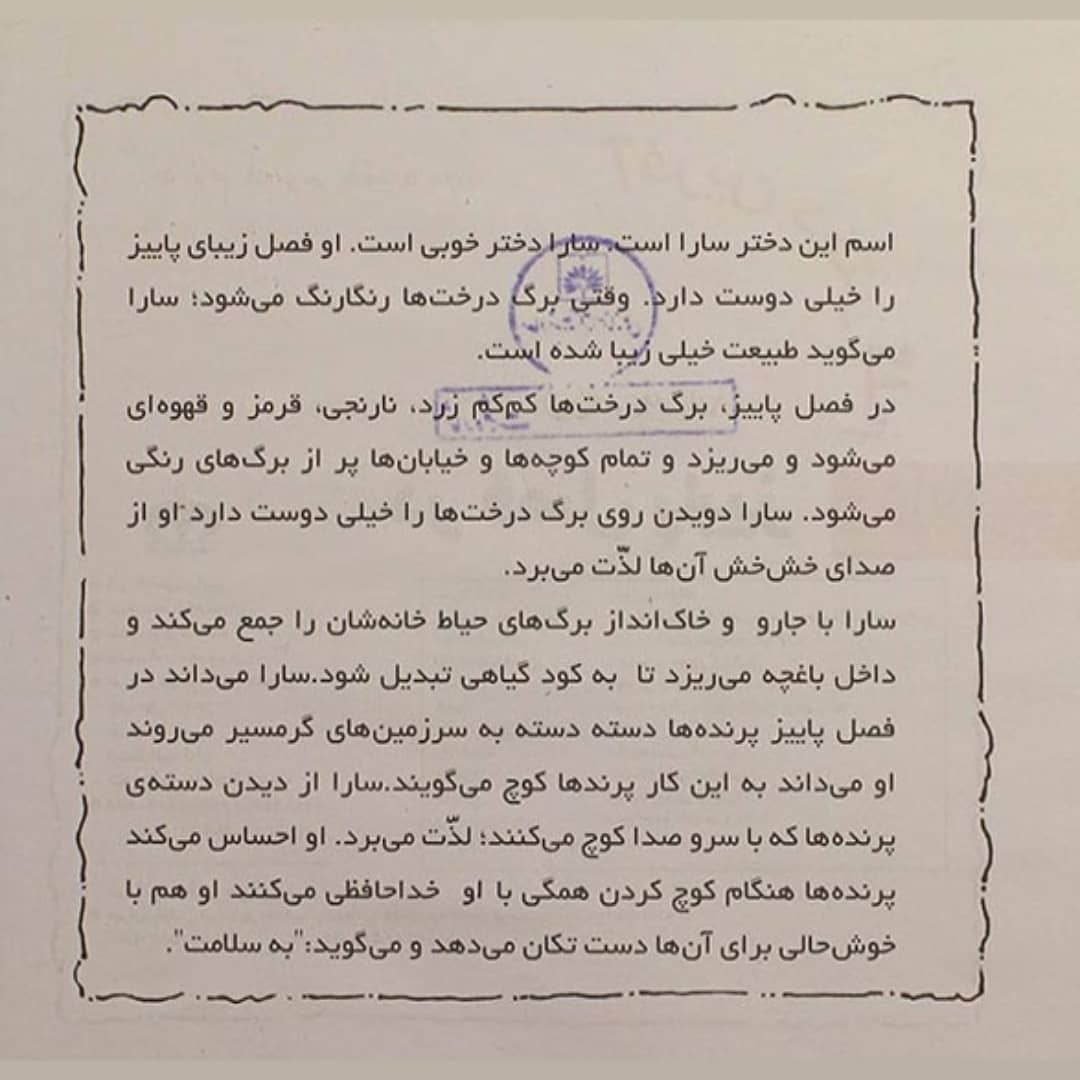 اسم این دختر سارا است. سارا دختر خوبی است. او فصل زیبای پاییز
را خیلی دوست دارد. وقتی برگ درخت‌ها رنگارنگ می‌شود؛ سارا
می‌گوید طبیعت خیلی زیبا شده است.
در فصل پاییز، برگ درخت‌ها کم‌کم زرد، نارنجی، قرمز و قهوه‌ای
می‌شود و می‌ریزد و تمام کوچه‌ها و خیابان‌ها پر از برگ‌های رنگی
می‌شود. سارا دویدن روی برگ درخت‌ها را خیلی دوست دارد او از
صدای خش‌خش آن‌ها لذّت می‌برد.
سارا با جارو و خاک‌انداز برگ‌های حیاط خانه‌شان را جمع می‌کند و
داخل باغچه می‌ریزد تا به کود گیاهی تبدیل شود.سارا می‌داند در
فصل پاییز پرنده‌ها دسته دسته به سرزمین‌های گرمسیر می‌روند
او می‌داند به این کار پرندها کوچ می‌گویند.سارا از دیدن دسته‌ی
پرنده‌ها که با سرو صدا کوچ می‌کنند؛ لذّت می‌برد. او احساس می‌کند
پرنده‌ها هنگام کوچ کردن همگی با او خداحافظی می‌کنند او هم با
خوش‌حالی برای آن‌ها دست تکان می‌دهد و می‌گوید:"به سلامت".